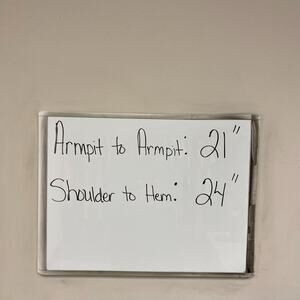 Armpit to Armpit: 21"
Shoulder to Hem: 24"